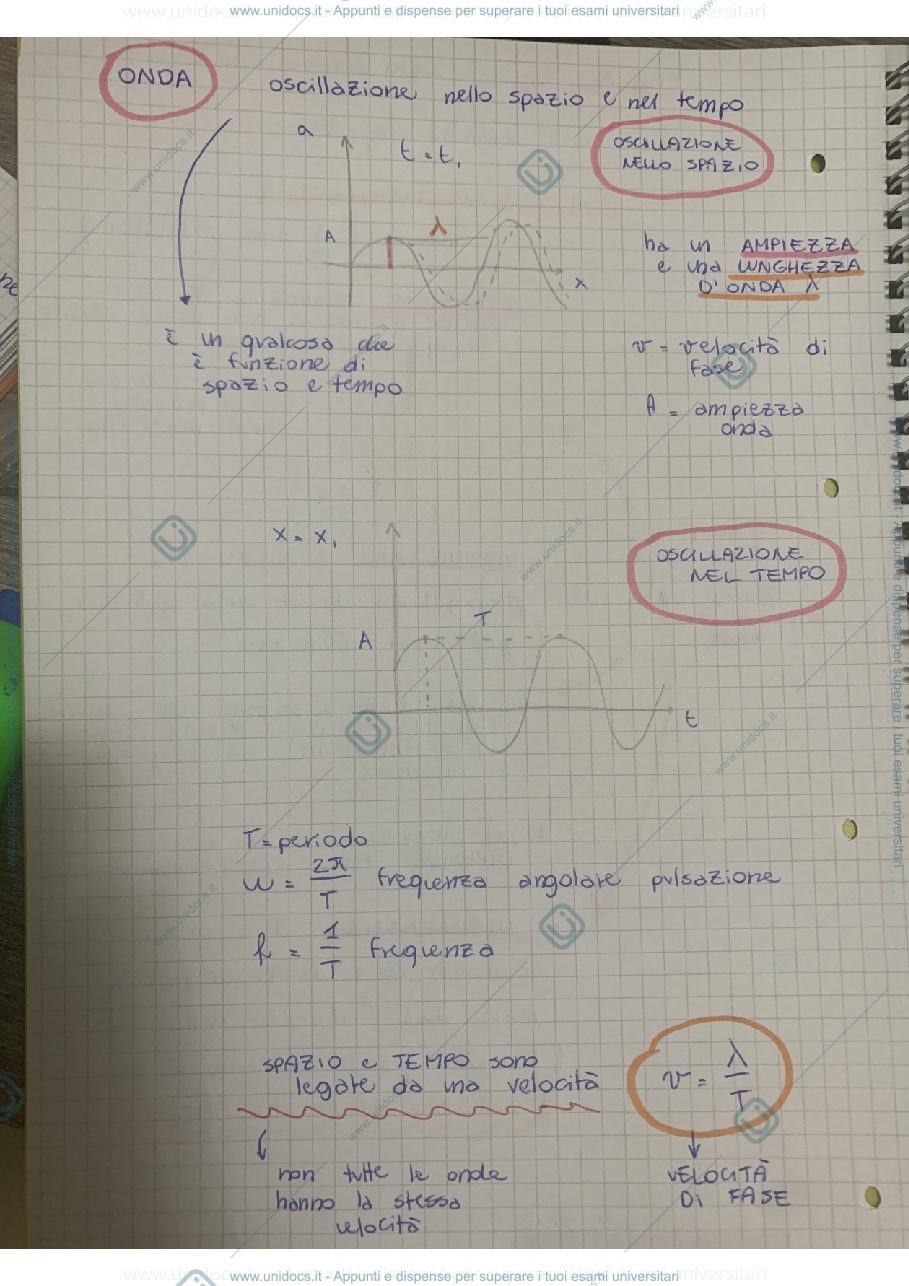 www.unidocs.it - Appunti e dispense per superare i tuoi esami universitari
ONDA
oscillazione nello spazio e nel tempo
a
t = t₁
OSCILLAZIONE
NELLO SPAZIO
λ
A
x
ha un AMPIEZZA
e una LUNGHEZZA
D'ONDA λ
è un qualcosa che
è funzione di
spazio e tempo
v = velocità di
fase
A = ampiezza
onda
x = x₁
OSCILLAZIONE
NEL TEMPO
T
A
t
T = periodo
ω = 2π/T frequenza angolare pulsazione
f = 1/T frequenza
SPAZIO e TEMPO sono
legate da una velocità
v = λ/T
non tutte le onde
hanno la stessa
velocità
VELOCITÀ
DI FASE
www.unidocs.it - Appunti e dispense per superare i tuoi esami universitari